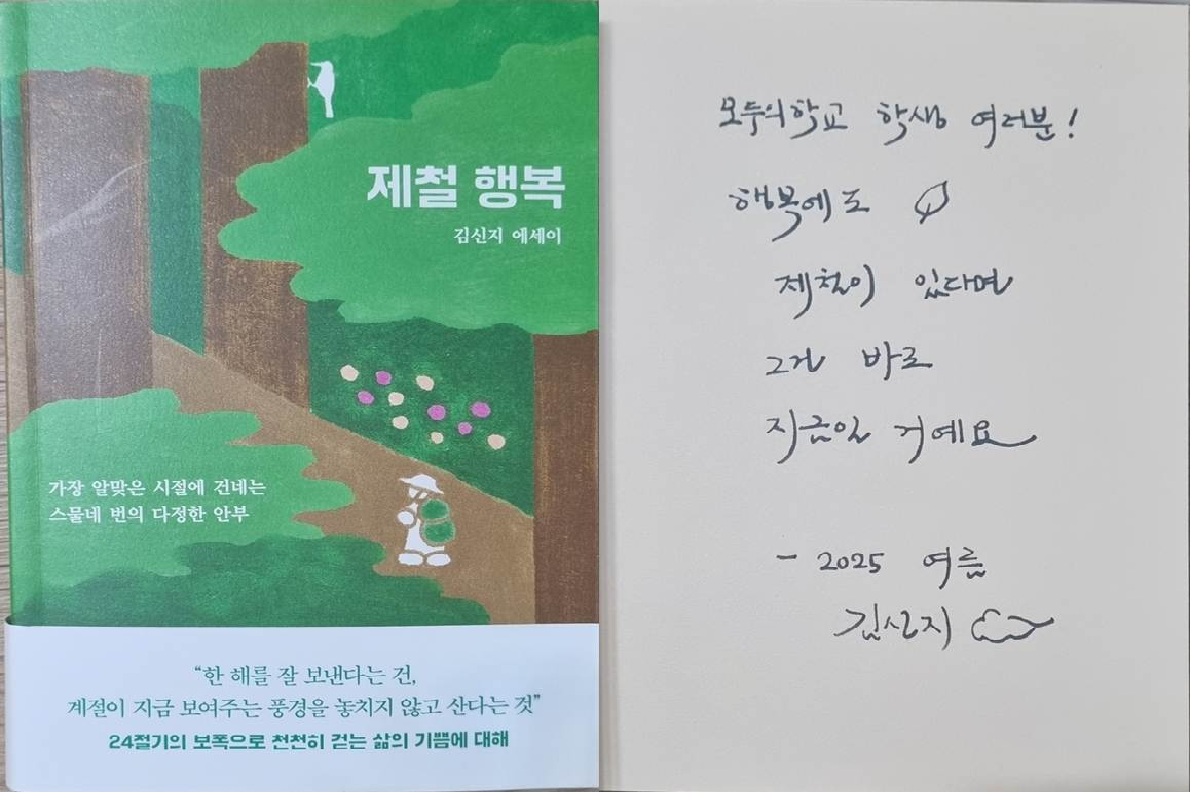 제철 행복
김신지 에세이
가장 알맞은 시절에 건네는
스물네 번의 다정한 안부
“한 해를 잘 보낸다는 건,
계절이 지금 보여주는 풍경을 놓치지 않고 산다는 것”
24절기의 보폭으로 천천히 걷는 삶의 기쁨에 대해
모두의학교 학생 여러분!
행복에도
제철이 있다면
그건 바로
지금일 거예요
- 2025 여름
김신지